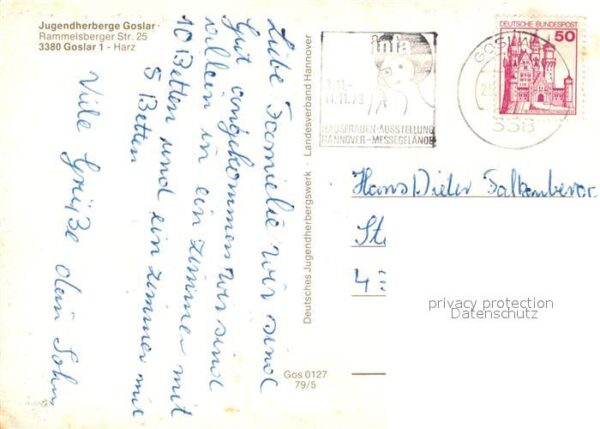 Jugendherberge Goslar
Rammelsberger Str. 25
3380 Goslar 1 - Harz
Liebe Familie wir sind
Gut angekommen wir sind
allein in ein Zimmer mit
10 Betten und ein Zimmer mit
5 Betten
Viele Grüße dein Sohn
Deutsches Jugendherbergswerk - Landesverband Hannover
Gos 0127
79/5
infa
11.11.79
HAUSFRAUEN-AUSSTELLUNG
HANNOVER-MESSEGELÄNDE
GOSLAR
338
DEUTSCHE BUNDESPOST
50
Hans Dieter
St
4
privacy protection
Datenschutz